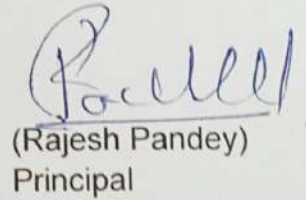 (Rajesh Pandey)
Principal